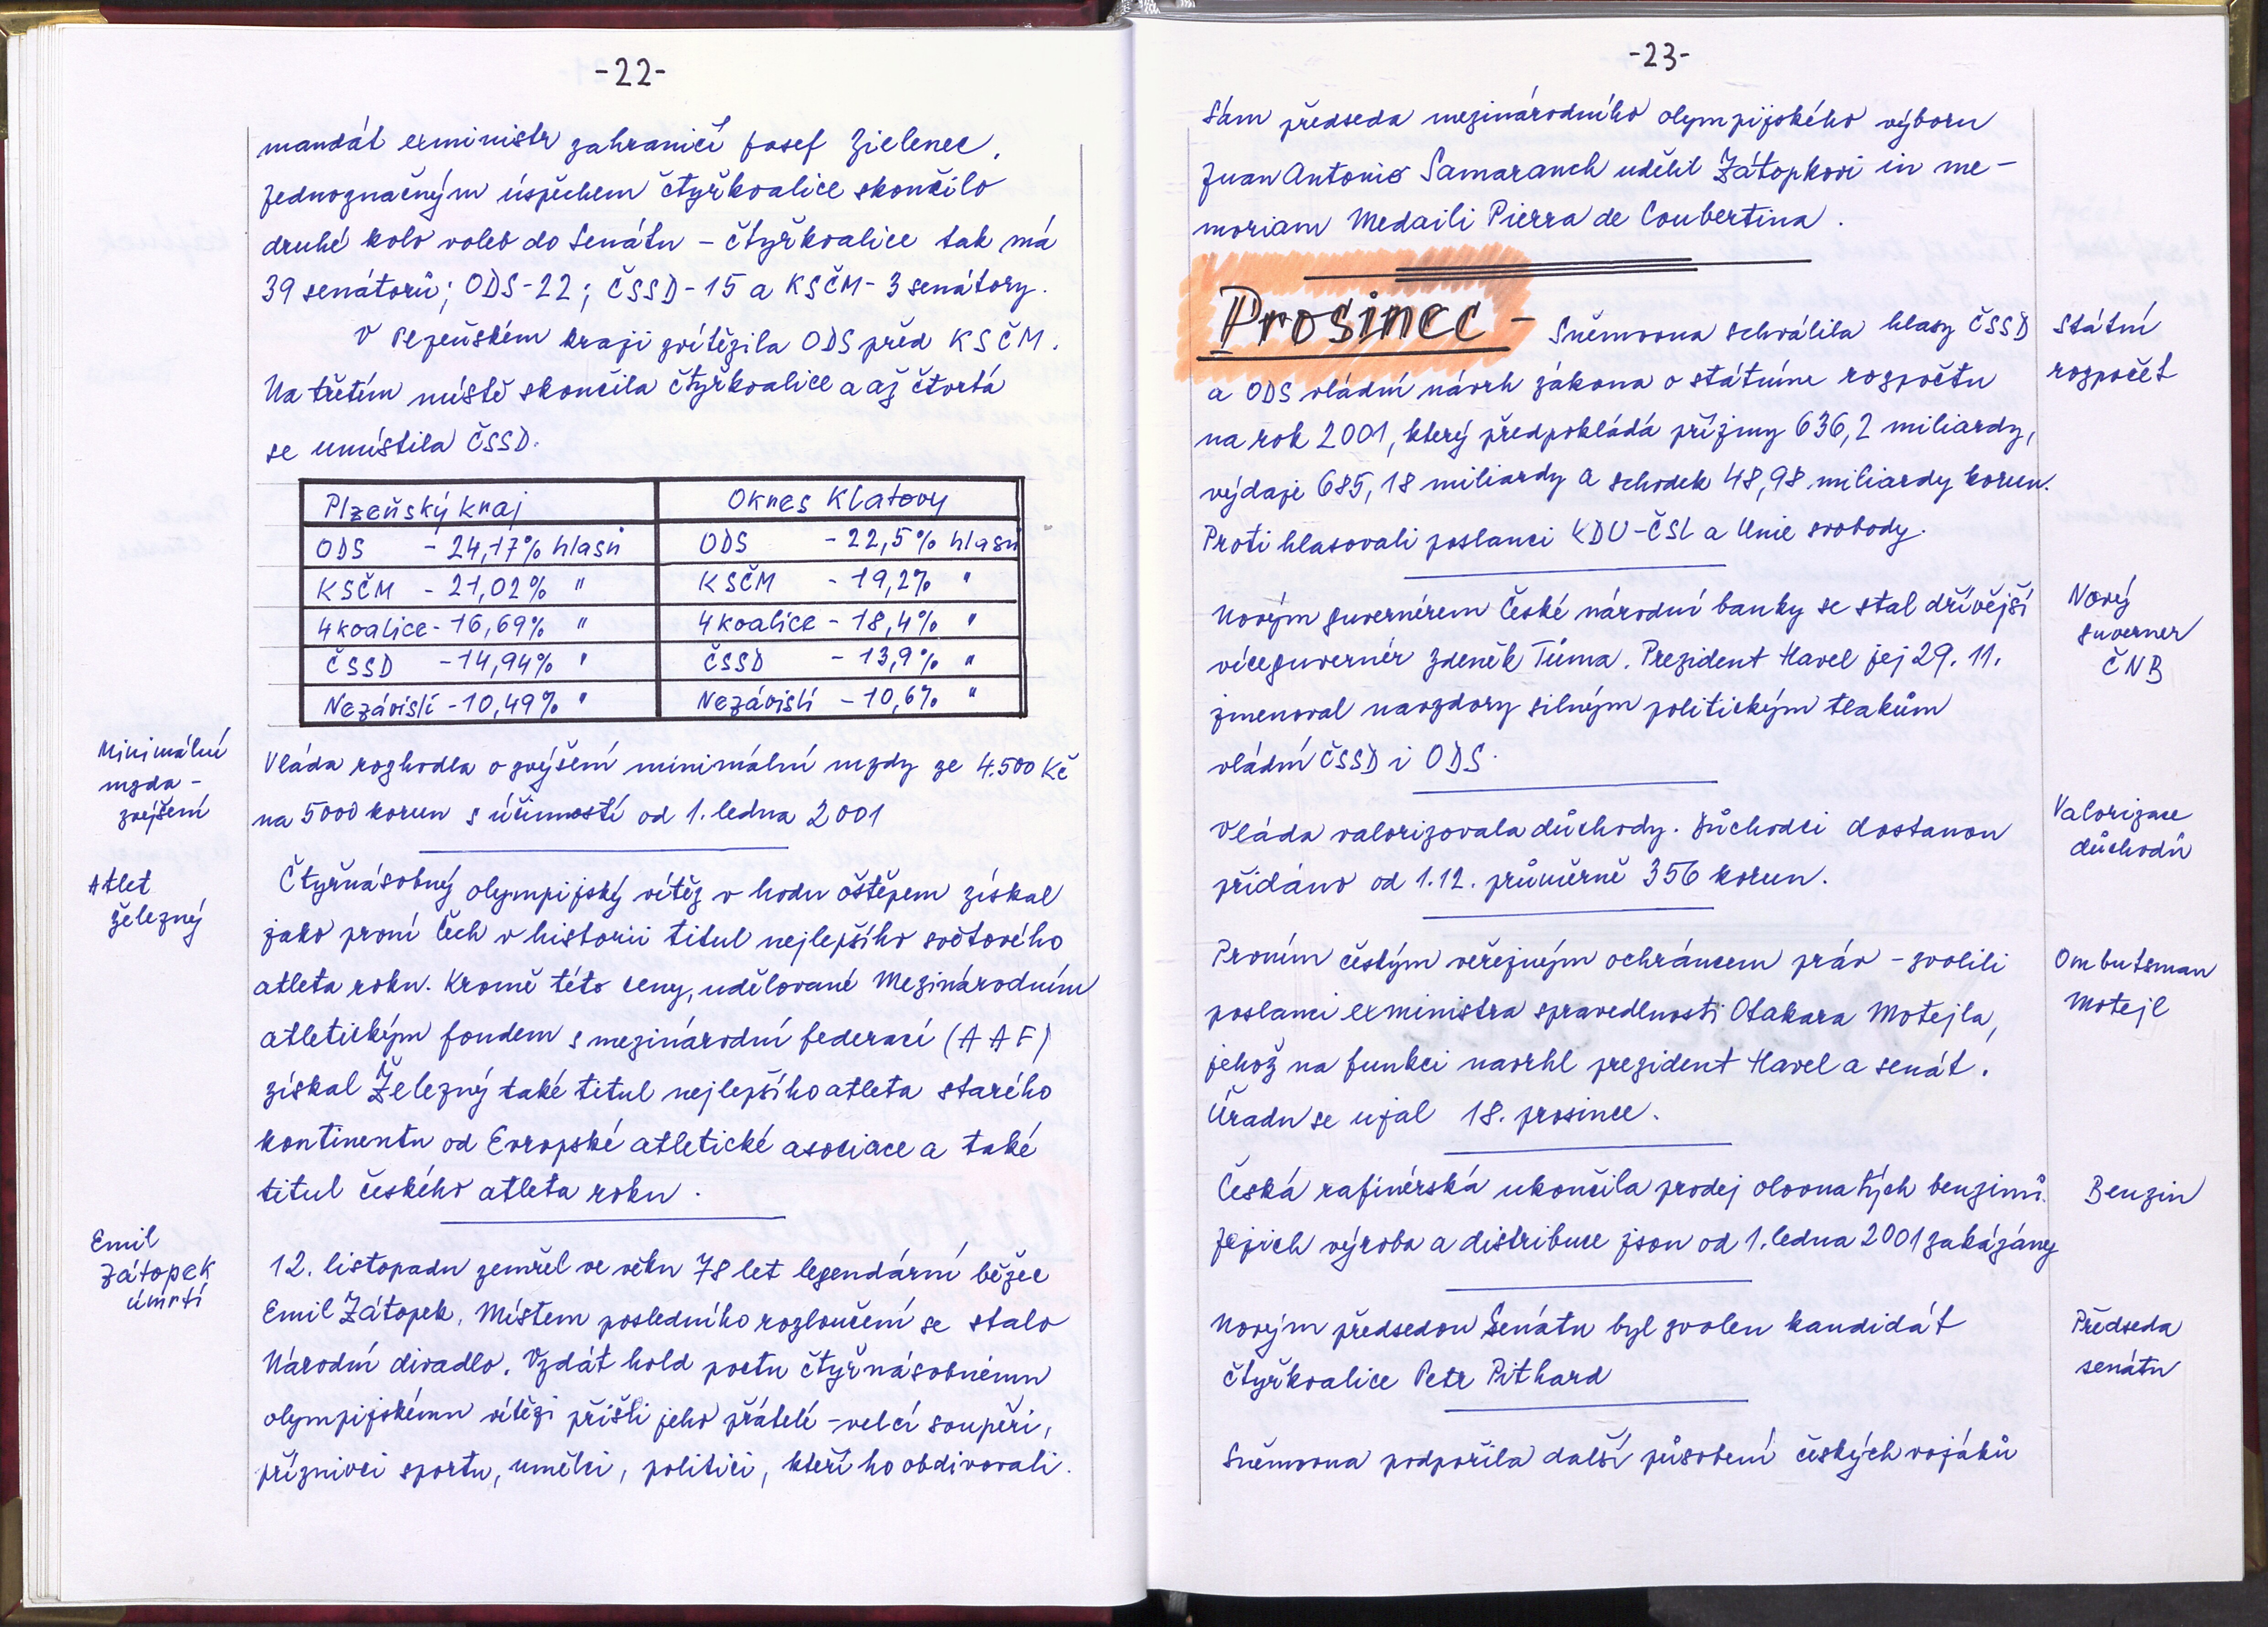 -22-
mandát exministr zahraničí Josef Zielenec.
Jednoznačným úspěchem čtyřkoalice skončilo
druhé kolo voleb do Senátu - čtyřkoalice tak má
39 senátorů; ODS-22; ČSSD-15 a KSČM-3 senátory.
V Plzeňském kraji zvítězila ODS před KSČM.
Na třetím místě skončila čtyřkoalice a až čtvrtá
se umístila ČSSD.
Plzeňský kraj
Okres Klatovy
ODS - 24,17% hlasů
ODS - 22,5% hlasů
KSČM - 21,02% "
KSČM - 19,2% "
4koalice - 16,69% "
4koalice - 18,4% "
ČSSD - 14,94% "
ČSSD - 13,9% "
Nezávislí - 10,49% "
Nezávislí - 10,6% "
Minimální
mzda -
zvýšení
Vláda rozhodla o zvýšení minimální mzdy ze 4.500 Kč
na 5000 korun s účinností od 1. ledna 2001
Atlet
Železný
Čtyřnásobný olympijský vítěz v hodu oštěpem získal
jako první Čech v historii titul nejlepšího světového
atleta roku. Kromě této ceny, udělované Mezinárodním
atletickým fondem s mezinárodní federací (AAF)
získal Železný také titul nejlepšího atleta starého
kontinentu od Evropské atletické asociace a také
titul českého atleta roku.
Emil
Zátopek
úmrtí
12. listopadu zemřel ve věku 78 let legendární běžec
Emil Zátopek. Místem posledního rozloučení se stalo
Národní divadlo. Vzdát hold poctu čtyřnásobnému
olympijskému vítězi přišli jeho přátelé - velcí soupeři,
příznivci sportu, umělci, politici, kteří ho obdivovali.
-23-
Sám předseda mezinárodního olympijského výboru
Juan Antonio Samaranch udělil Zátopkovi in me-
moriam Medaili Pierra de Coubertina.
Prosinec - Sněmovna schválila hlasy ČSSD
a ODS vládní návrh zákona o státním rozpočtu
na rok 2001, který předpokládá příjmy 636,2 miliardy,
výdaje 685,18 miliardy a schodek 48,98 miliardy korun.
Proti hlasovali poslanci KDU-ČSL a Unie svobody.
Státní
rozpočet
Novým guvernérem České národní banky se stal dřívější
víceguvernér Zdeněk Tůma. Prezident Havel jej 29. 11.
jmenoval navzdory silným politickým tlakům
vládní ČSSD i ODS.
Nový
guverner
ČNB
Vláda valorizovala důchody. Důchodci dostanou
přidáno od 1.12. průměrně 356 korun.
Valorizace
důchodů
Prvním českým veřejným ochráncem práv - zvolili
poslanci exministra spravedlnosti Otakara Motejla,
jehož na funkci navrhl prezident Havel a senát.
Úradu se ujal 18. prosince.
Ombutsman
Motejl
Česká rafinérská ukončila prodej olovnatých benzinů.
Jejich výroba a distribuce jsou od 1. ledna 2001 zakázány
Benzin
Novým předsedou Senátu byl zvolen kandidát
čtyřkoalice Petr Pithard
Předseda
senátu
Sněmovna podpořila další působení českých vojáků